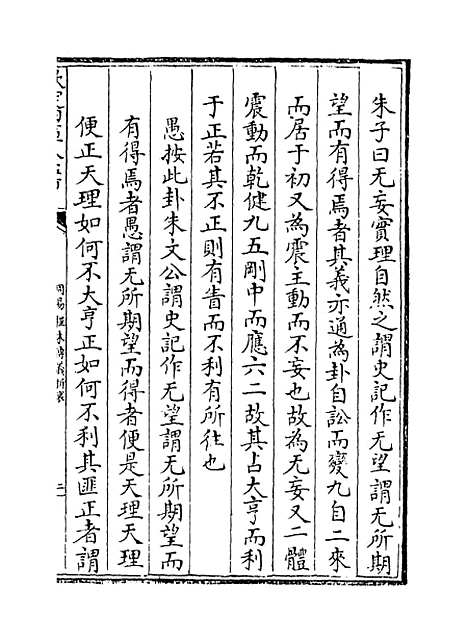 朱子曰无妄實理自然之謂史記作无望謂无所期
望而有得焉者其義亦通為卦自訟而變九自二來
而居于初又為震主動而不妄也故為无妄又二體
震動而乾健九五剛中而應六二故其占大亨而利
于正若其不正則有眚而不利有所往也
愚按此卦朱文公謂史記作无望謂无所期望而
有得焉者愚謂无所期望而得者便是天理天理
便正天理如何不大亨正如何不利其匪正者謂
欽定四庫全書
周易經傳義折衷